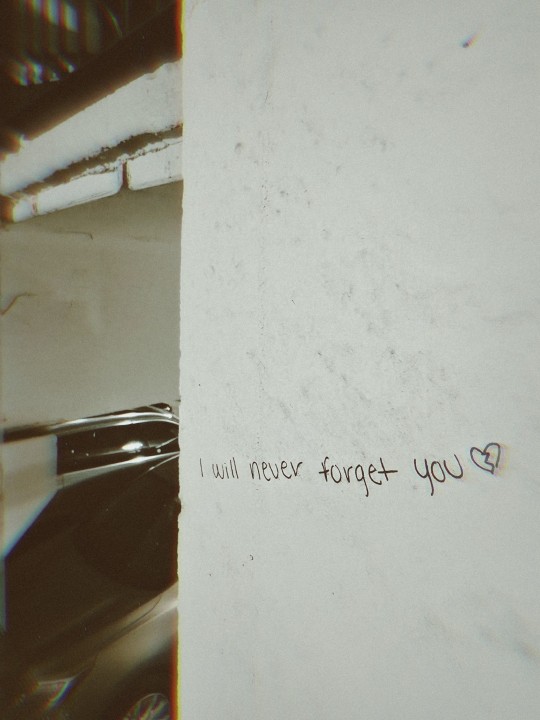 I will never forget you